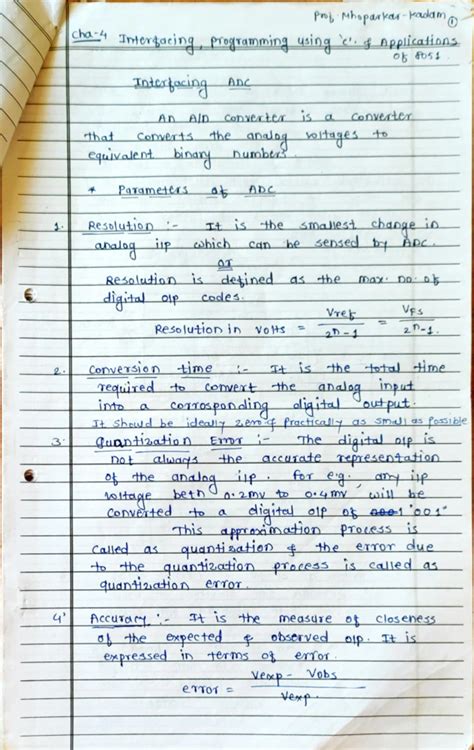 Prof. Mhoparkar-Kadam
1
Cha-4 Interfacing, programming using 'c' & Applications
of 8051.
Interfacing ADC
An A/D converter is a converter
that converts the analog voltages to
equivalent binary numbers.
* Parameters of ADC
1. Resolution :- It is the smallest change in
analog i/p which can be sensed by ADC.
or
Resolution is defined as the max. no. of
digital o/p codes.
Resolution in volts = Vref / 2^n-1 = VFS / 2^n-1.
2. Conversion time :- It is the total time
required to convert the analog input
into a corrosponding digital output.
It should be ideally zero & practically as small as possible
3. Quantization Error :- The digital o/p is
not always the accurate representation
of the analog i/p. For e.g., any i/p
voltage betn 0.2mv to 0.4mv will be
converted to a digital o/p of "001"
This approximation process is
called as quantization & the error due
to the quantization process is called as
quantization error.
4' Accuracy :- It is the measure of closeness
of the expected & observed o/p. It is
expressed in terms of error.
error = Vexp - Vobs / Vexp.